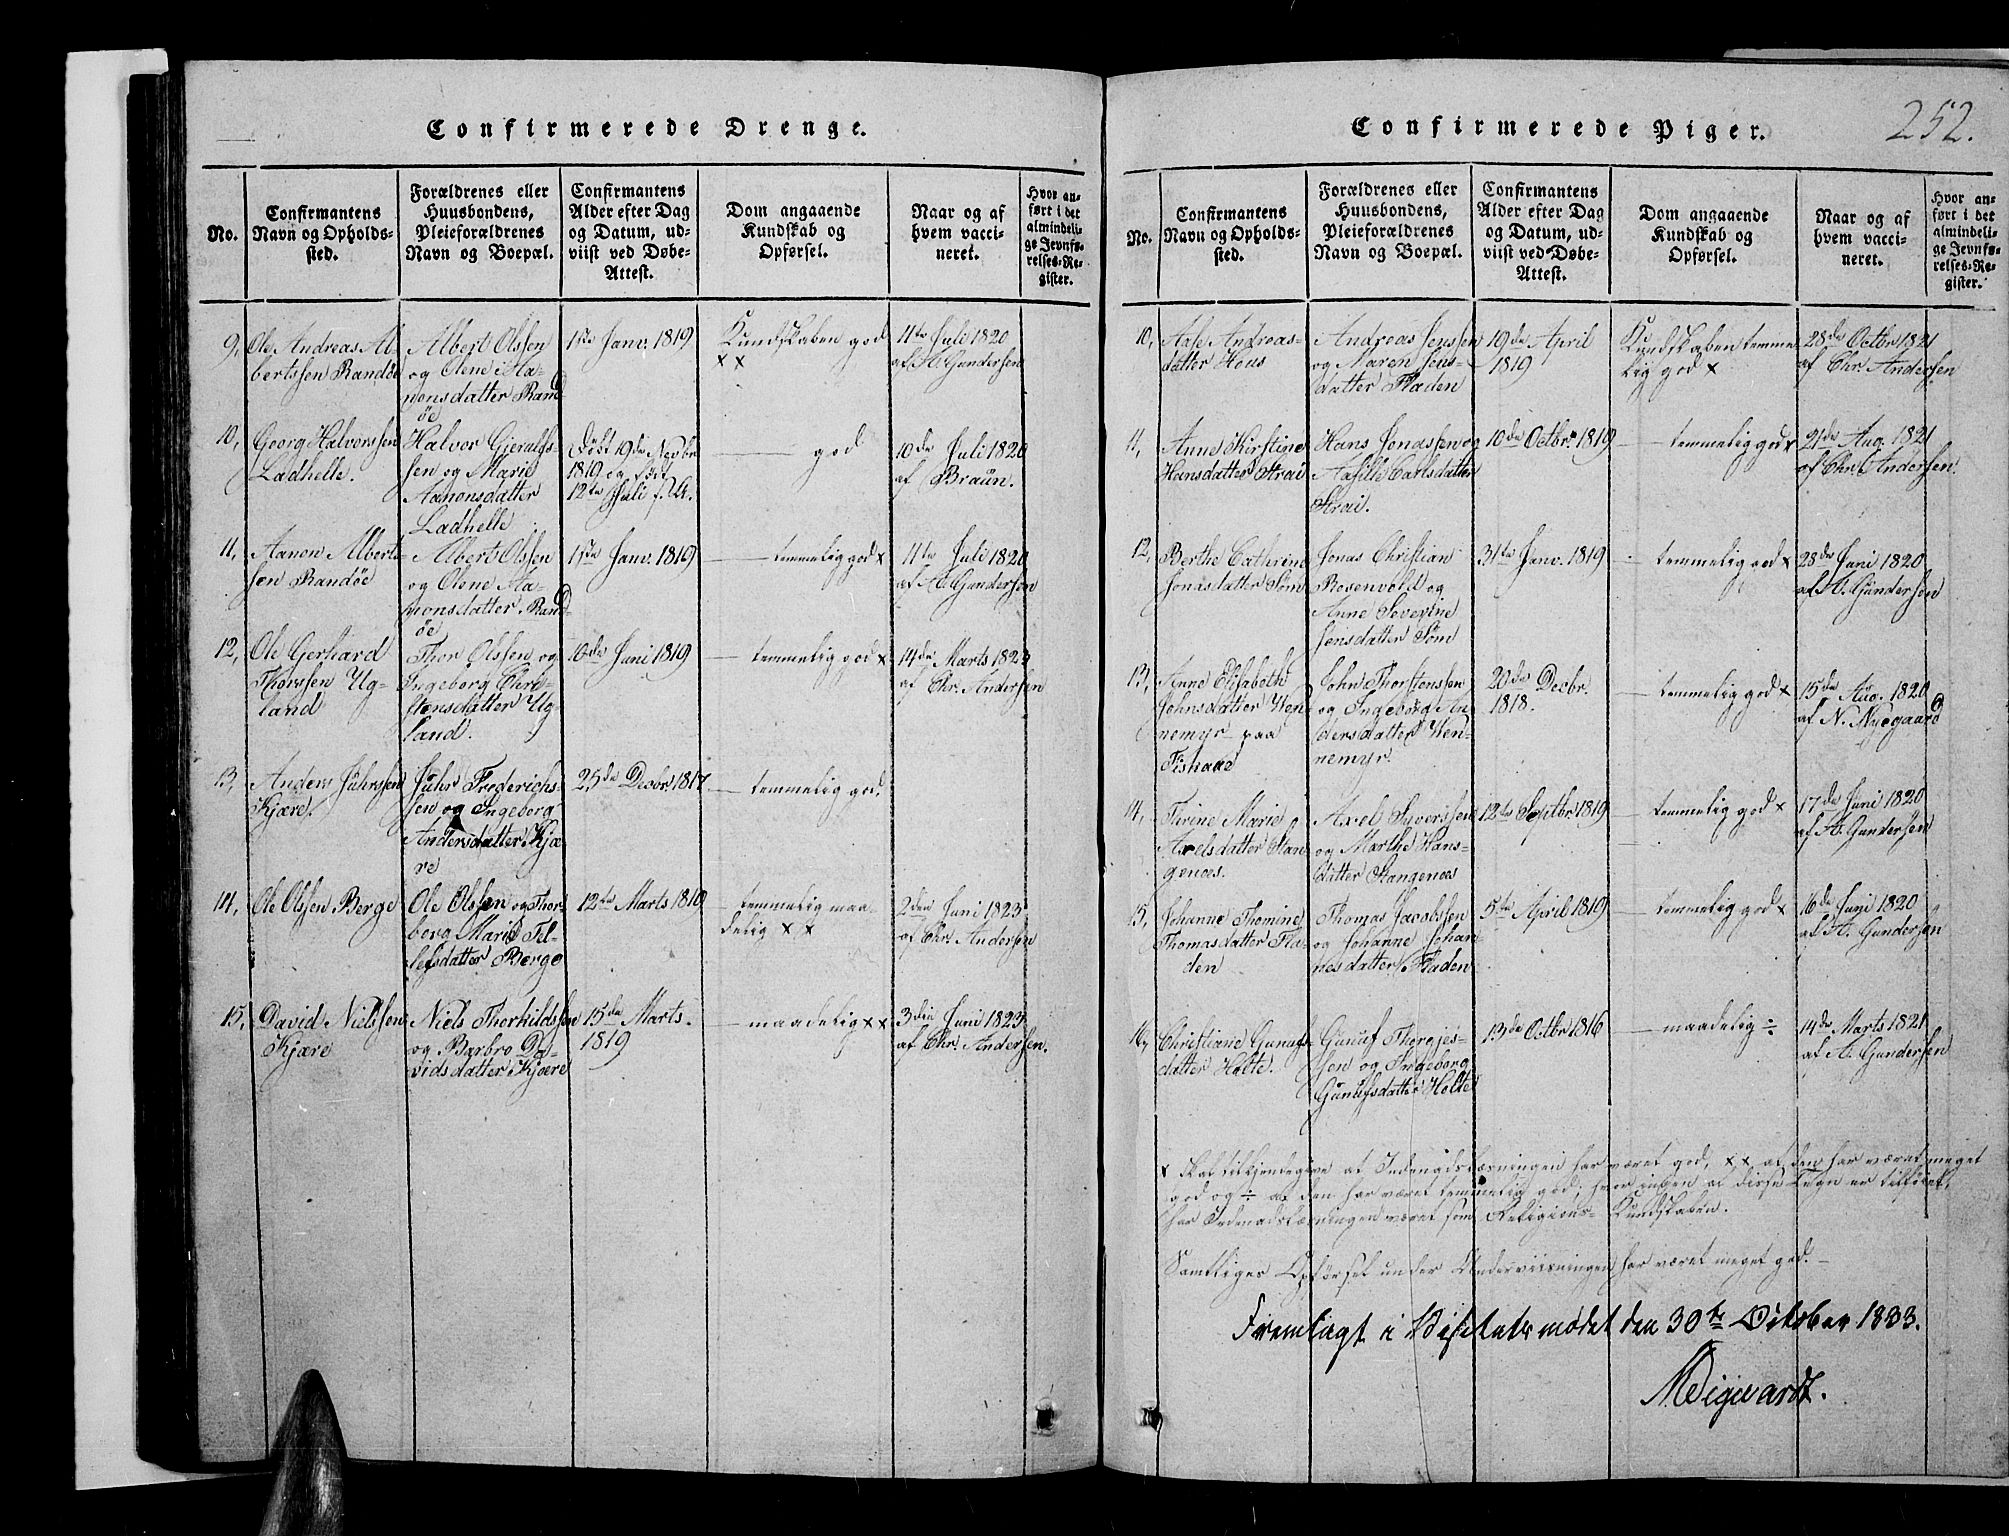 Confirmerede Drenge.
No.
Confirmantens
Navn og Opholds-
sted.
Forældrenes eller
Huusbondens,
Pleieforældrenes
Navn og Boepæl.
Confirmantens
Alder efter Dag
og Datum, ud-
viist ved Døbe-
Attest.
Dom angaaende
Kundskab og
Opførsel.
Naar og af
hvem vacci-
neret.
Hvor an-
ført i det
almindeli-
ge Jevnfø-
relses-Re-
gister.
9, Ole Andreas Al-
bertssen Randöe
Albert Olssen
og Olene Aa-
nonsdatter Rand
öe
1ste Janv. 1819
Kundskaben god
x x
11te Juli 1820
af A. Gundersen
10, Georg Halvorssen
Ladhelle.
Halvor Gjerulfs-
sen og Marie
Aanonsdatter
Ladhelle
Döbt 19de Novbr
1819 og född
12te Juli s. A.
— god
10de Juli 1820
af Braün.
11, Aanon Alberts-
sen Randöe
Albert Olssen
og Olene Aa-
nonsdatter Rand-
öe
1ste Janv. 1819
— temmelig god x
11te Juli 1820
af A. Gundersen
12, Ole Gerhard
Thorssen Ug-
land
Thor Olssen og
Ingeborg Chri-
stensdatter Ug-
land.
10de Juni 1819
— temmelig god x
14de Marts 1823
af Chr. Andersen
13, Anders Juhrssen
Kjære.
Juhr Frederichs-
sen og Ingeborg
Andersdatter Kjæ
re
25de Decbr 1817
— temmelig god.
14, Ole Olssen Berge
Ole Olssen og Thor-
berg Marie Tel-
lefsdatter Berge
12te Marts 1819
— temmelig maa-
delig x x
2den Juni 1823
af Chr. Andersen
15, David Nielssen
Kjære
Niels Thorkildssen
og Barbro Da-
vidsdatter Kjære
15de Marts
1819
— maadelig x x
3die Juni 1823
af Chr. Andersen.
Confirmerede Piger.
252.
No.
Confirmantens
Navn og Opholds-
sted.
Forældrenes eller
Huusbondens,
Pleieforældrenes
Navn og Boepæl.
Confirmantens
Alder efter Dag
og Datum, ud-
viist ved Døbe-
Attest.
Dom angaaende
Kundskab og
Opførsel.
Naar og af
hvem vacci-
neret.
Hvor an-
ført i det
almindeli-
ge Jevnfø-
relses-Re-
gister.
10, Aase Andreas-
datter Hous
Andreas Jenssen
og Maren Jens-
datter Fladen
19de April
1819
Kundskaben temme
lig god x
28de Octbr 1821
af Chr. Andersen
11, Anne Kirstine
Hansdatter Strai
Hans Jonassen og
Aasille Carlsdatter
Strai.
10de Octbr 1819
— temmelig god x
21de Aug. 1821
af Chr. Andersen.
12, Berthe Cathrine
Jonasdatter Söm
Jonas Christian
Rosenvold og
Anne Severine
Jensdatter Söm
31te Janv. 1819
— temmelig god x
28de Juni 1820
af A. Gundersen
13, Anne Elisabeth
Johnsdatter Wen
nemyr paa
Fiskaae
John Thorstenssen
og Ingeborg An-
dersdatter Wen-
nemyr.
20de Decbr.
1818.
— temmelig god x
15de Aug. 1820
af N. Nyegaard
14, Thrine Marie
Axelsdatter Stan
genæs.
Axel Syverssen
og Marthe Hans-
datter Stangenæs
12te Septbr 1819
— temmelig god x
17de Juni 1820
af A. Gundersen
15, Johanne Thomine
Thomasdatter Fla-
den
Thomas Jacobssen
og Johanne Johan-
nesdatter Fladen
5te April 1819
— temmelig god x
16de Juni 1820
af A. Gundersen
16, Christiane Gunufs-
datter Holte.
Gunuf Thorgjes-
sen og Ingeborg
Gunufsdatter Holte
13de Octbr 1816
— maadelig ÷
14de Marts 1821
af A. Gundersen
x skal tilkjendegive at Indenadslæsningen har været god, x x at den har været meget
god og ÷ at den har været temmelig god; hvor ingen af disse Tegn er tilföiet,
har Indenadslæsningen været som Religions-Kundskaben.
Samtliges Opförsel under Underviisningen har været meget god. —
Fremlagt i Visitatsmødet den 30te October 1833.